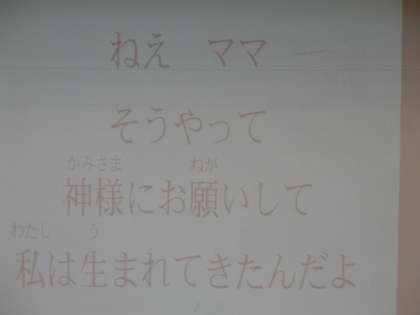 ねえ　ママ
そうやって
かみさま ねが
神様にお願いして
わたし う
私は生まれてきたんだよ